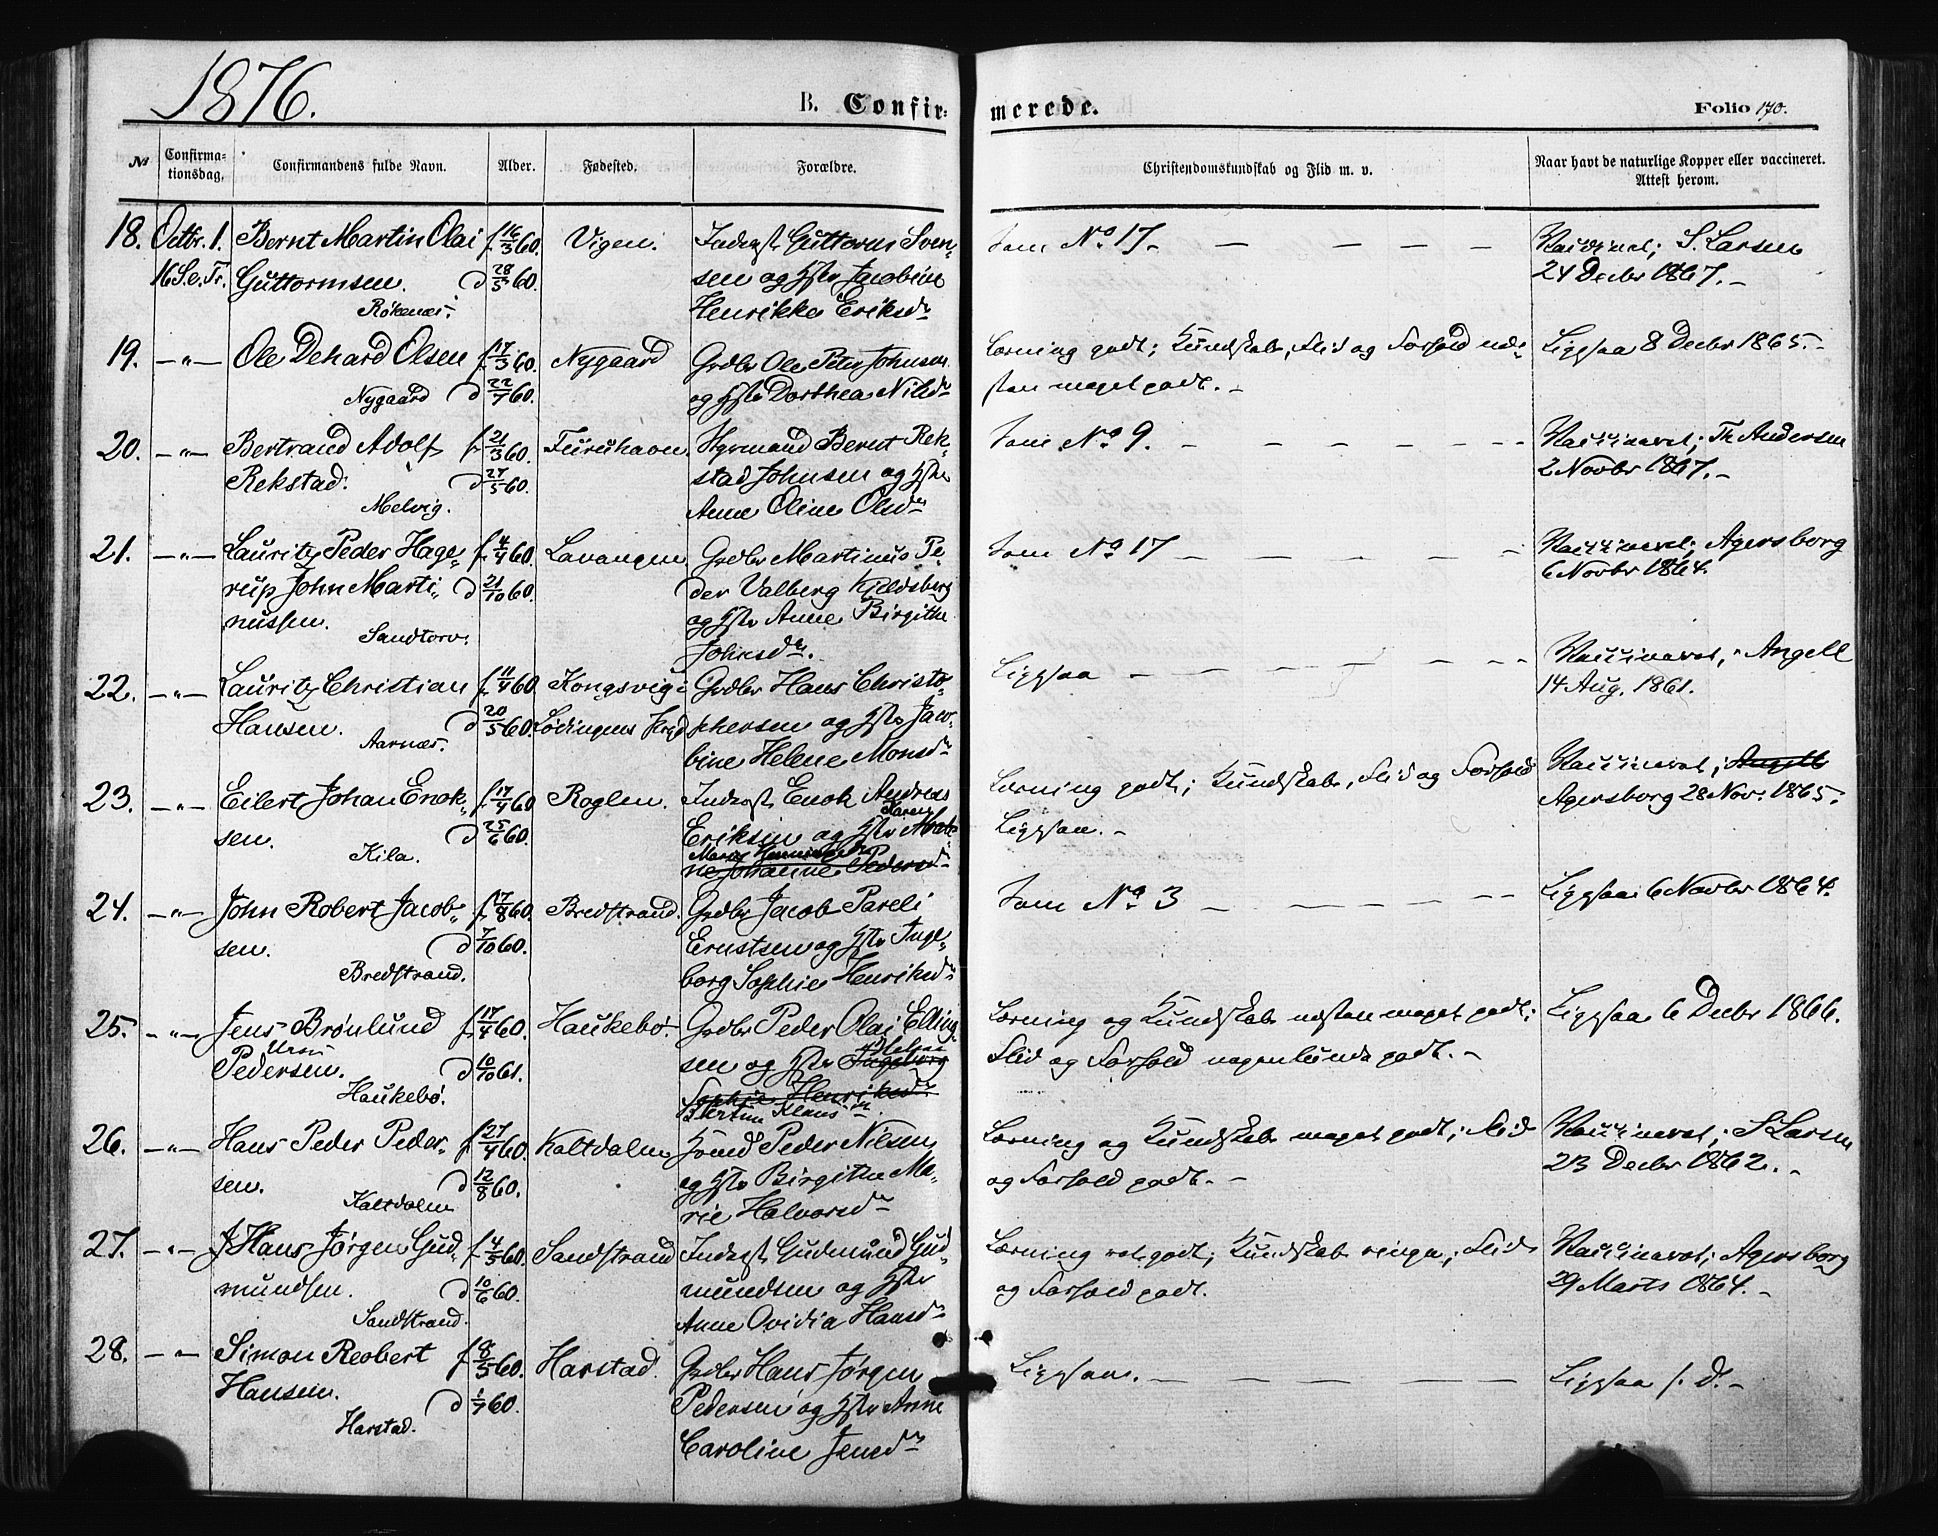 1876.
B. Confir-
merede.
Folio 170.
№ Confirma-tionsdag. Confirmandens fulde Navn. Alder. Fødested. Forældre. Christendomskundskab og Flid m. v. Naar havt de naturlige Kopper eller vaccineret. Attest herom.
18. Octbr. 1. Bernt Martin Olai f. 16/3 60. Vigen. Inderst Guttorm Sven- Som No 17. — — — — — Vaccineret; S. Larsen
16 S. e. Tr. Guttormsen. d 28/5 60. sen og Hstr Jacobine 24 Decbr 1867. —
Røkenæs. Henrikke Eriksdr
19. —„— Ole Dehard Olsen f. 17/3 60. Nygaard Grdbr Ole Peter Johnsen Læsning godt; Kundskab, Flid og Forhold næs- Ligesaa 8 Decbr 1865. —
Nygaard d 22/7 60. og Hstr Dorthea Nilsdr ten meget godt. —
20. —„— Bertrand Adolf f. 21/3 60. Furuhavn Bernt Rek- Som No 9. — — — — — Vaccineret; Th. Andersen
Rekstad. d 27/5 60. stad Johnsen og Hstr 2 Novbr 1867. —
Melvig. Anne Oline Olsdr
21. —„— Lauritz Peder Hage- f. 4/4 60. Lavangen Grdbr Martinus Pe- Som No 17 — — — — — Vaccineret; Agersborg
rup John Marti- d 21/10 60. der Valberg Kjeldsberg 6 Novbr 1864.
nussen. og Hstr Anne Birgithe
Sandtorv. Johnsdr.
22. —„— Lauritz Christian f. 11/4 60. Kongsvig i Grdbr Hans Christo- Ligesaa — — — — — Vaccineret, Angell
Hansen. d 20/5 60. Lødingens Prgd phersen og Hstr Jaco- 14 Aug. 1861.
Aarnæs. bine Helene Monsdr
23. —„— Eilert Johan Enok- f. 17/4 60 Roglen. Inderst Enok Andreas Læsning godt; Kundskab, Flid og Forhold Vaccineret; Angell
sen. d 25/6 60. Eriksen og Hstr Karen Ligesaa. — Agersborg 28 Nov. 1865.
Kila. Johanne Pedersdr
24. —„— John Robert Jacob- f. 17/8 60. Bredstrand. Grdbr Jacob Pareli Som No 3 — — — — — Ligesaa 6 Novbr 1864.
sen. d 7/10 60. Ernstsen og Hstr Inge-
Bredstrand. borg Sophie Henriksdr
25. —„— Jens Brønlund f. 17/4 60. Haukebø. Grdbr Peder Olai Elling- Læsning og Kundskab næsten meget godt; Ligesaa 6 Decbr 1866.
Pedersen. d 10/10 61. sen og Hstr Ingeborg Flid og Forhold nogenlunde godt. —
Haukebø. Sophie Henriksdr
26. —„— Hans Peder Peder- f. 27/4 60. Kaltdalen Peder Nilsen Læsning og Kundskab meget godt; Flid Vaccineret; S. Larsen
sen. d 12/8 60. og Hstr Birgithe Ma- og Forhold godt. — 23 Decbr 1862. —
Kaltdalen rie Halvorsdr
27. —„— Hans Jørgen Gud- f. 4/5 60. Sandstrand Inderst Gudmund Gud- Læsning ret godt; Kundskab ringe; Flid Vaccineret; Agersborg
mundsen. d 10/6 60. mundsen og Hstr og Forhold godt. 29 Marts 1864. —
Sandstrand. Anne Ovidia Hansdr
28. —„— Simon Reobert f. 8/5 60. Harstad. Grdbr Hans Jørgen Ligesaa. — — — — — Ligesaa s. D. —
Hansen. d 1/7 60. Pedersen og Hstr Anne
Harstad. Caroline Jensdr